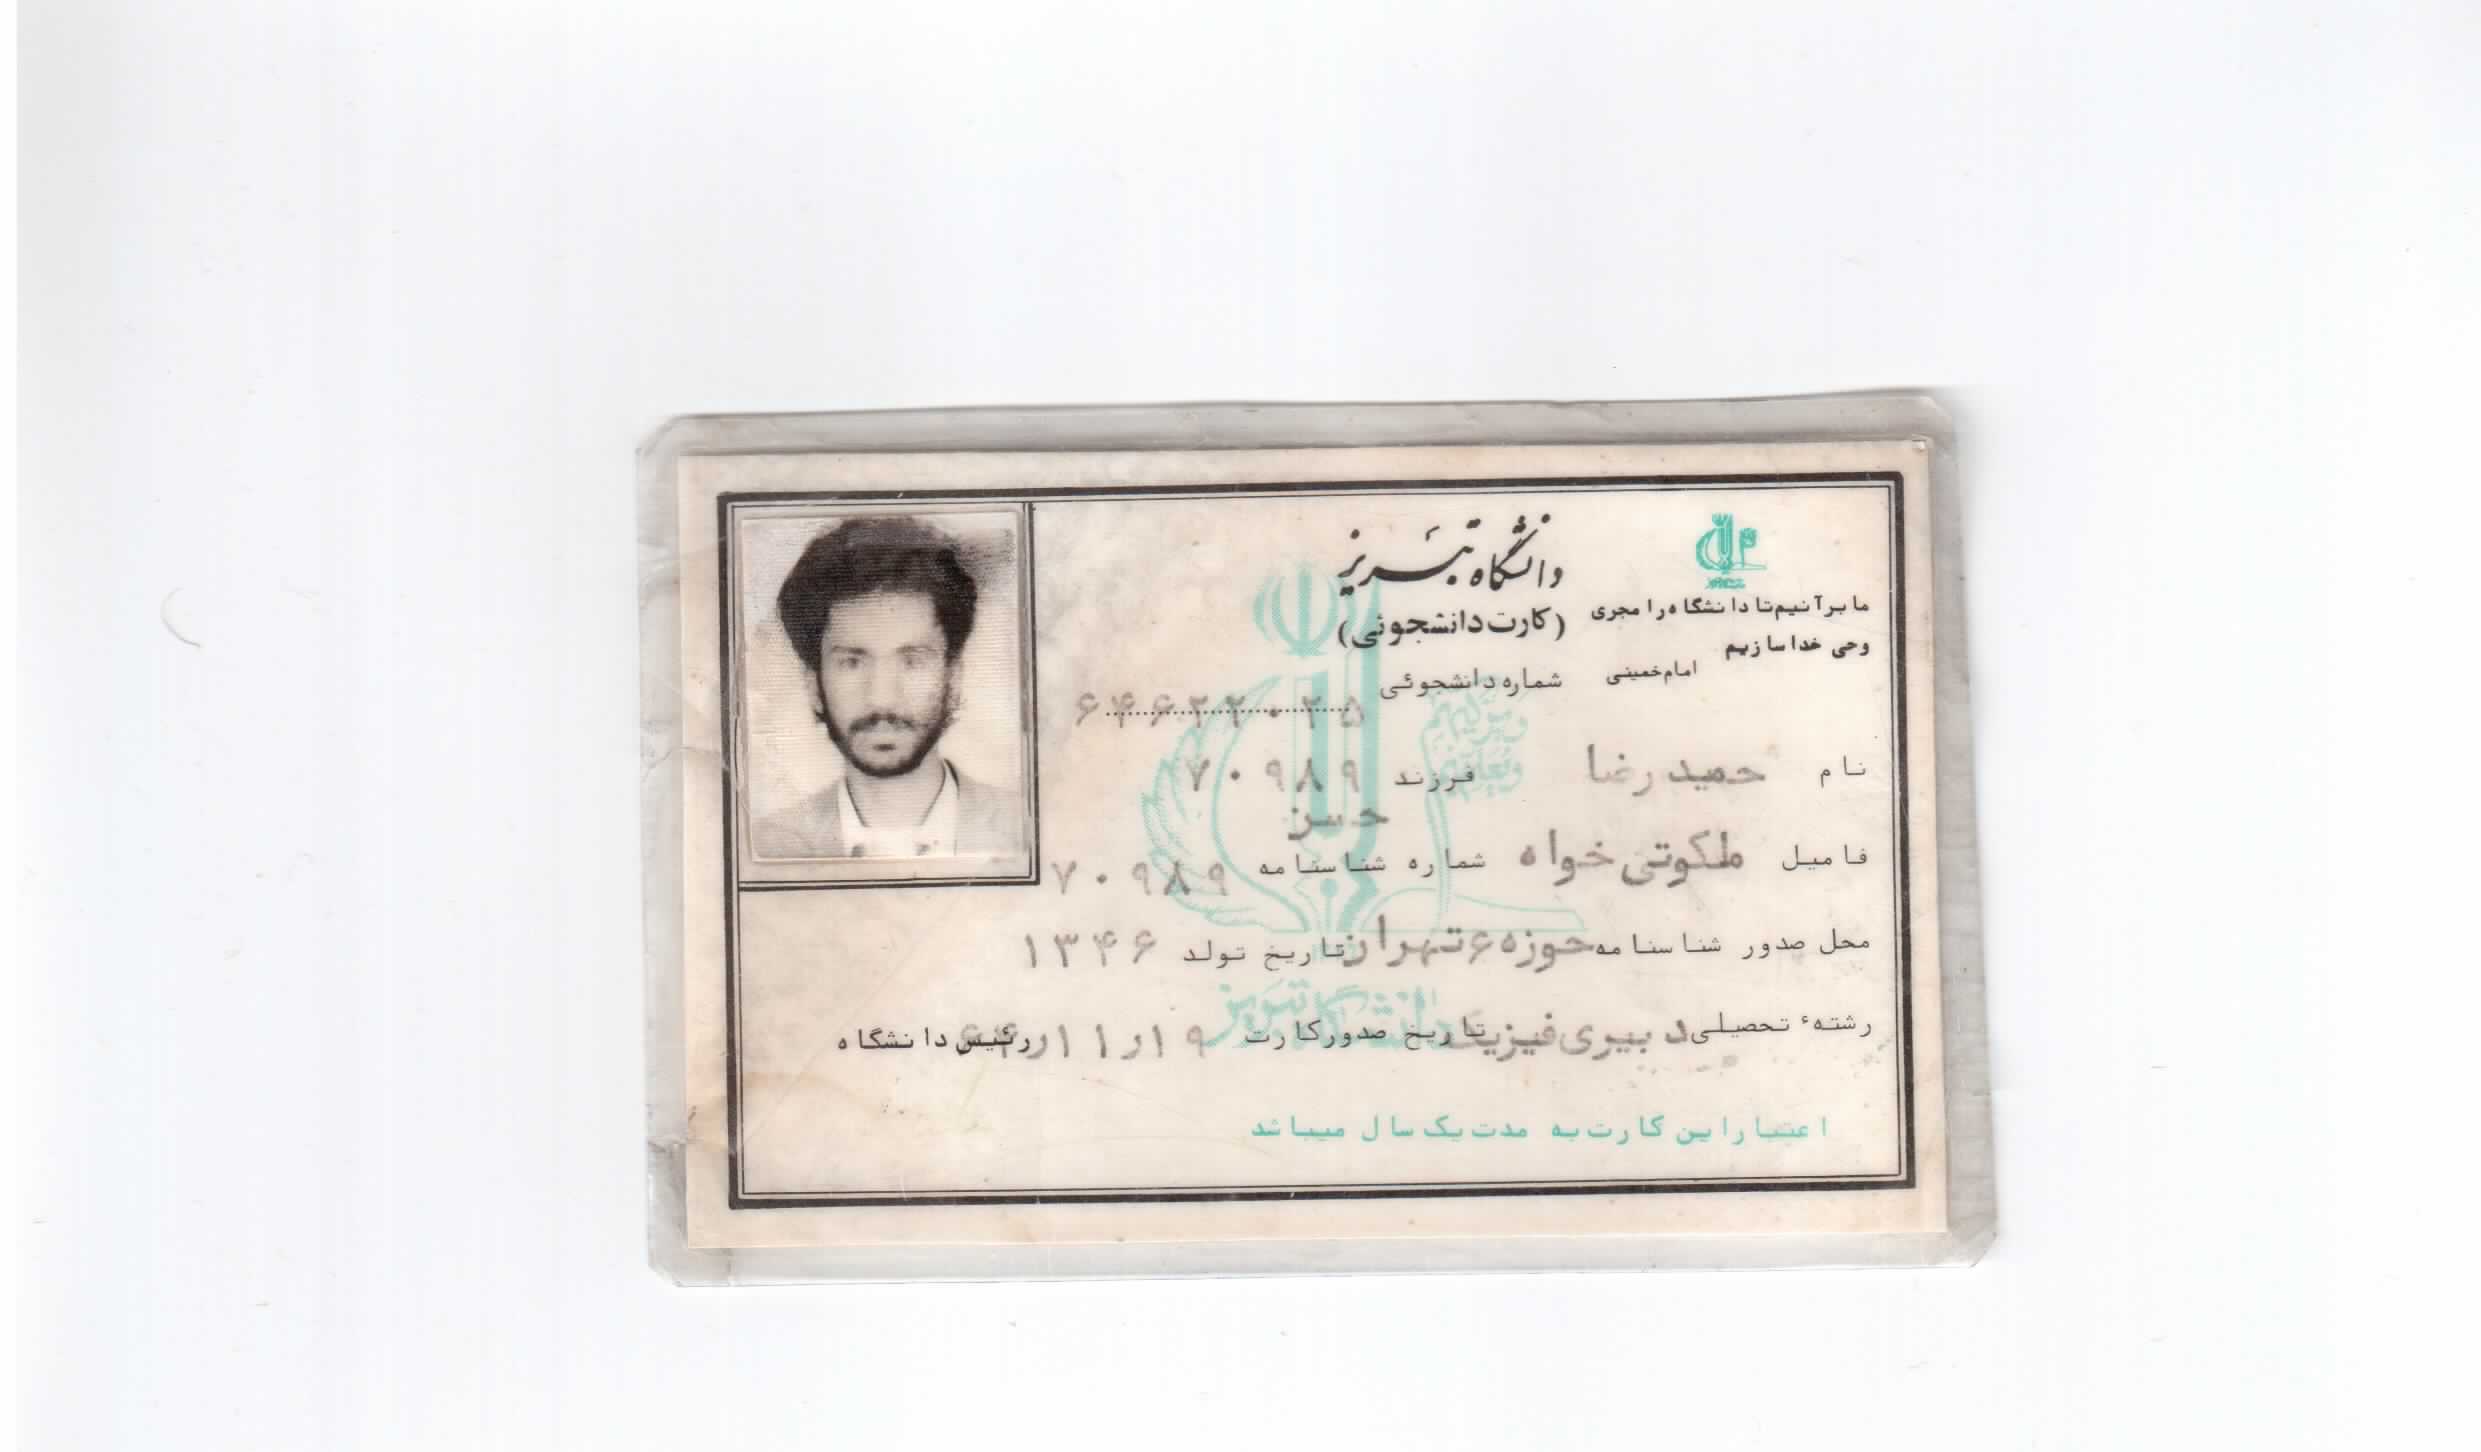 دانشگاه تبریز
(کارت دانشجوئی)
ما بر آنیم تا دانشگاه را مجری
وحی خدا سازیم
امام خمینی
شماره دانشجوئی ۶۴۶۲۲۰۲۵
نام حمیدرضا فرزند ۷۰۹۸۹
حسن
فامیل ملکوتی خواه شماره شناسنامه ۷۰۹۸۹
محل صدور شناسنامه حوزه ۶ تهران تاریخ تولد ۱۳۴۶
رشتهٔ تحصیلی دبیری فیزیک تاریخ صدور کارت ۱۹ر۱۱ر۶۴ رئیس دانشگاه
دانشگاه تبریز
اعتبار این کارت به مدت یک سال میباشد